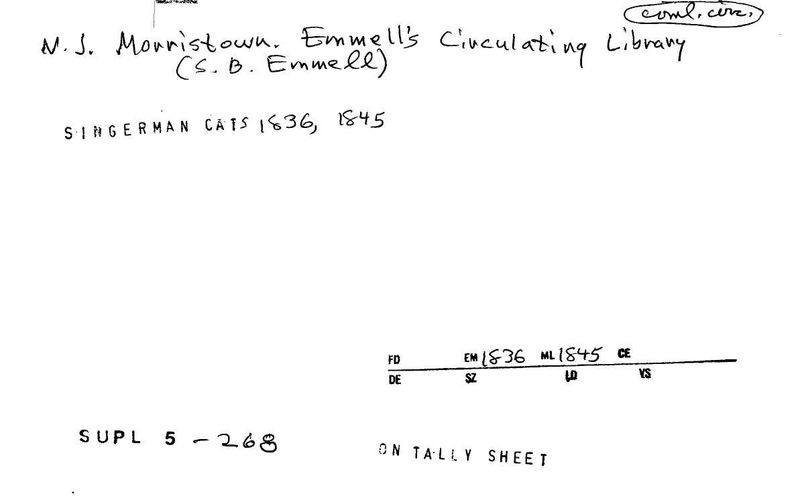 coml. circ.
N.J. Morristown. Emmell's Circulating Library
(S. B. Emmell)
SINGERMAN CATS 1836, 1845
FD EM 1836 ML 1845 CE
DE SZ LD VS
SUPL 5 - 268
ON TALLY SHEET